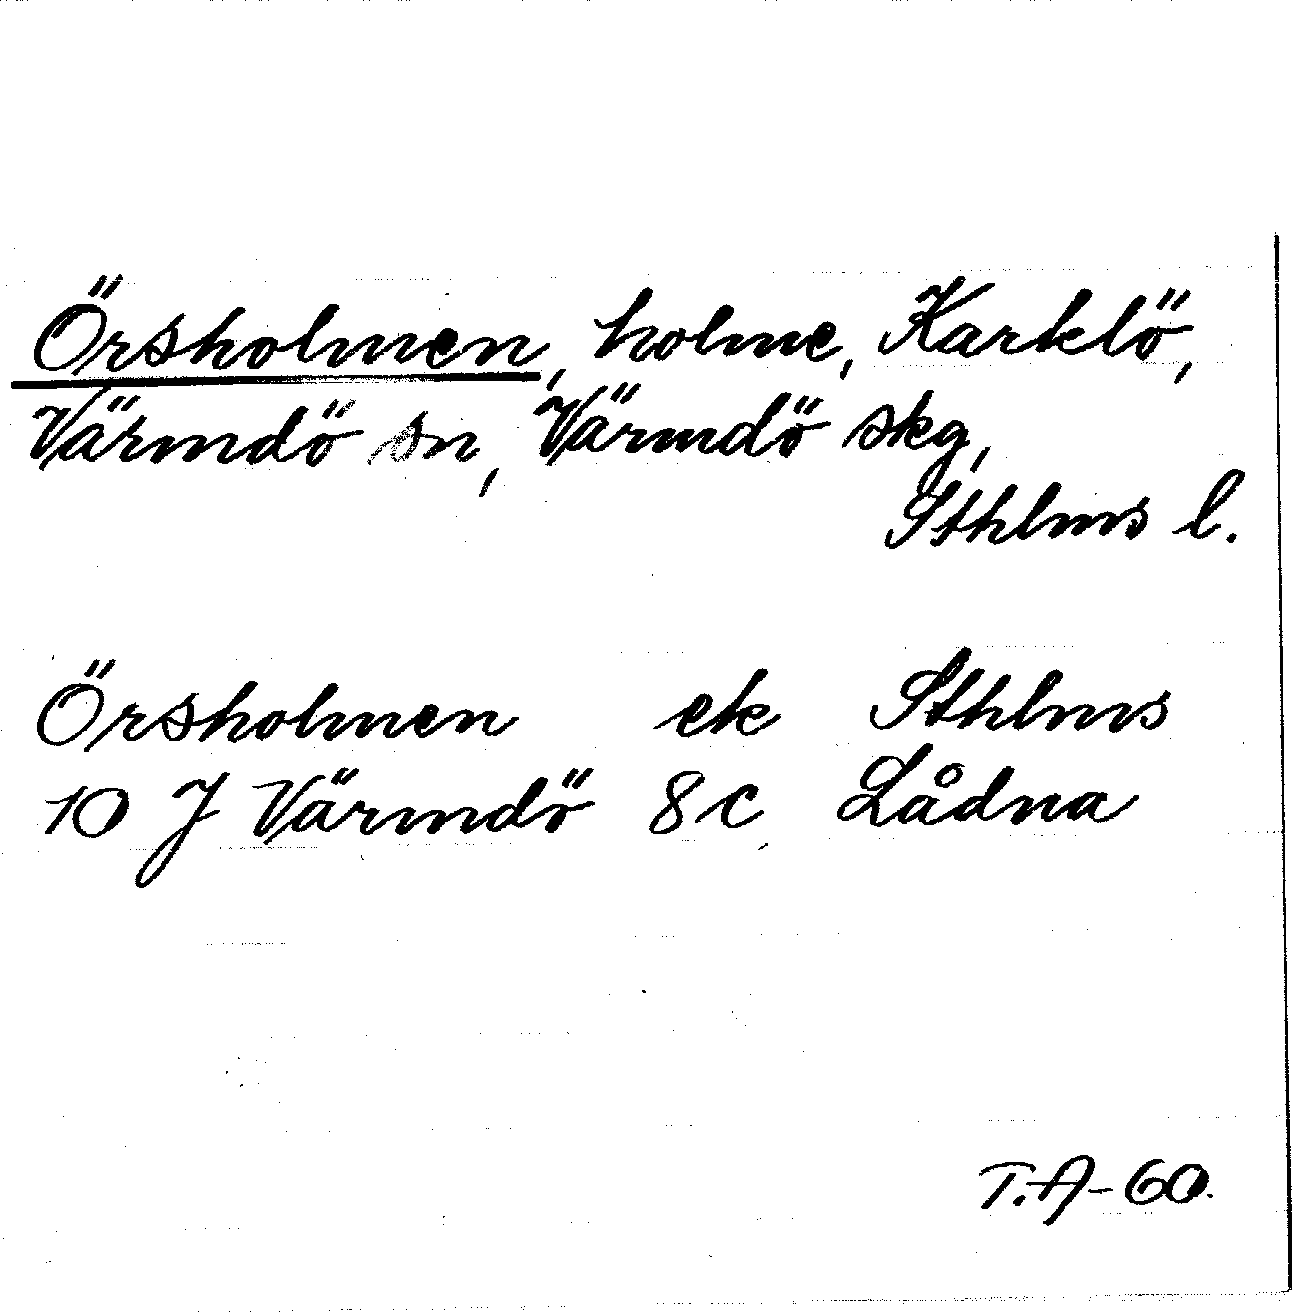 Örsholmen, holme, Karklö,
Värmdö sn, Värmdö skg,
Sthlms l.
Örsholmen ek Sthlms
10 J Värmdö 8c Lådna
T.A-60.